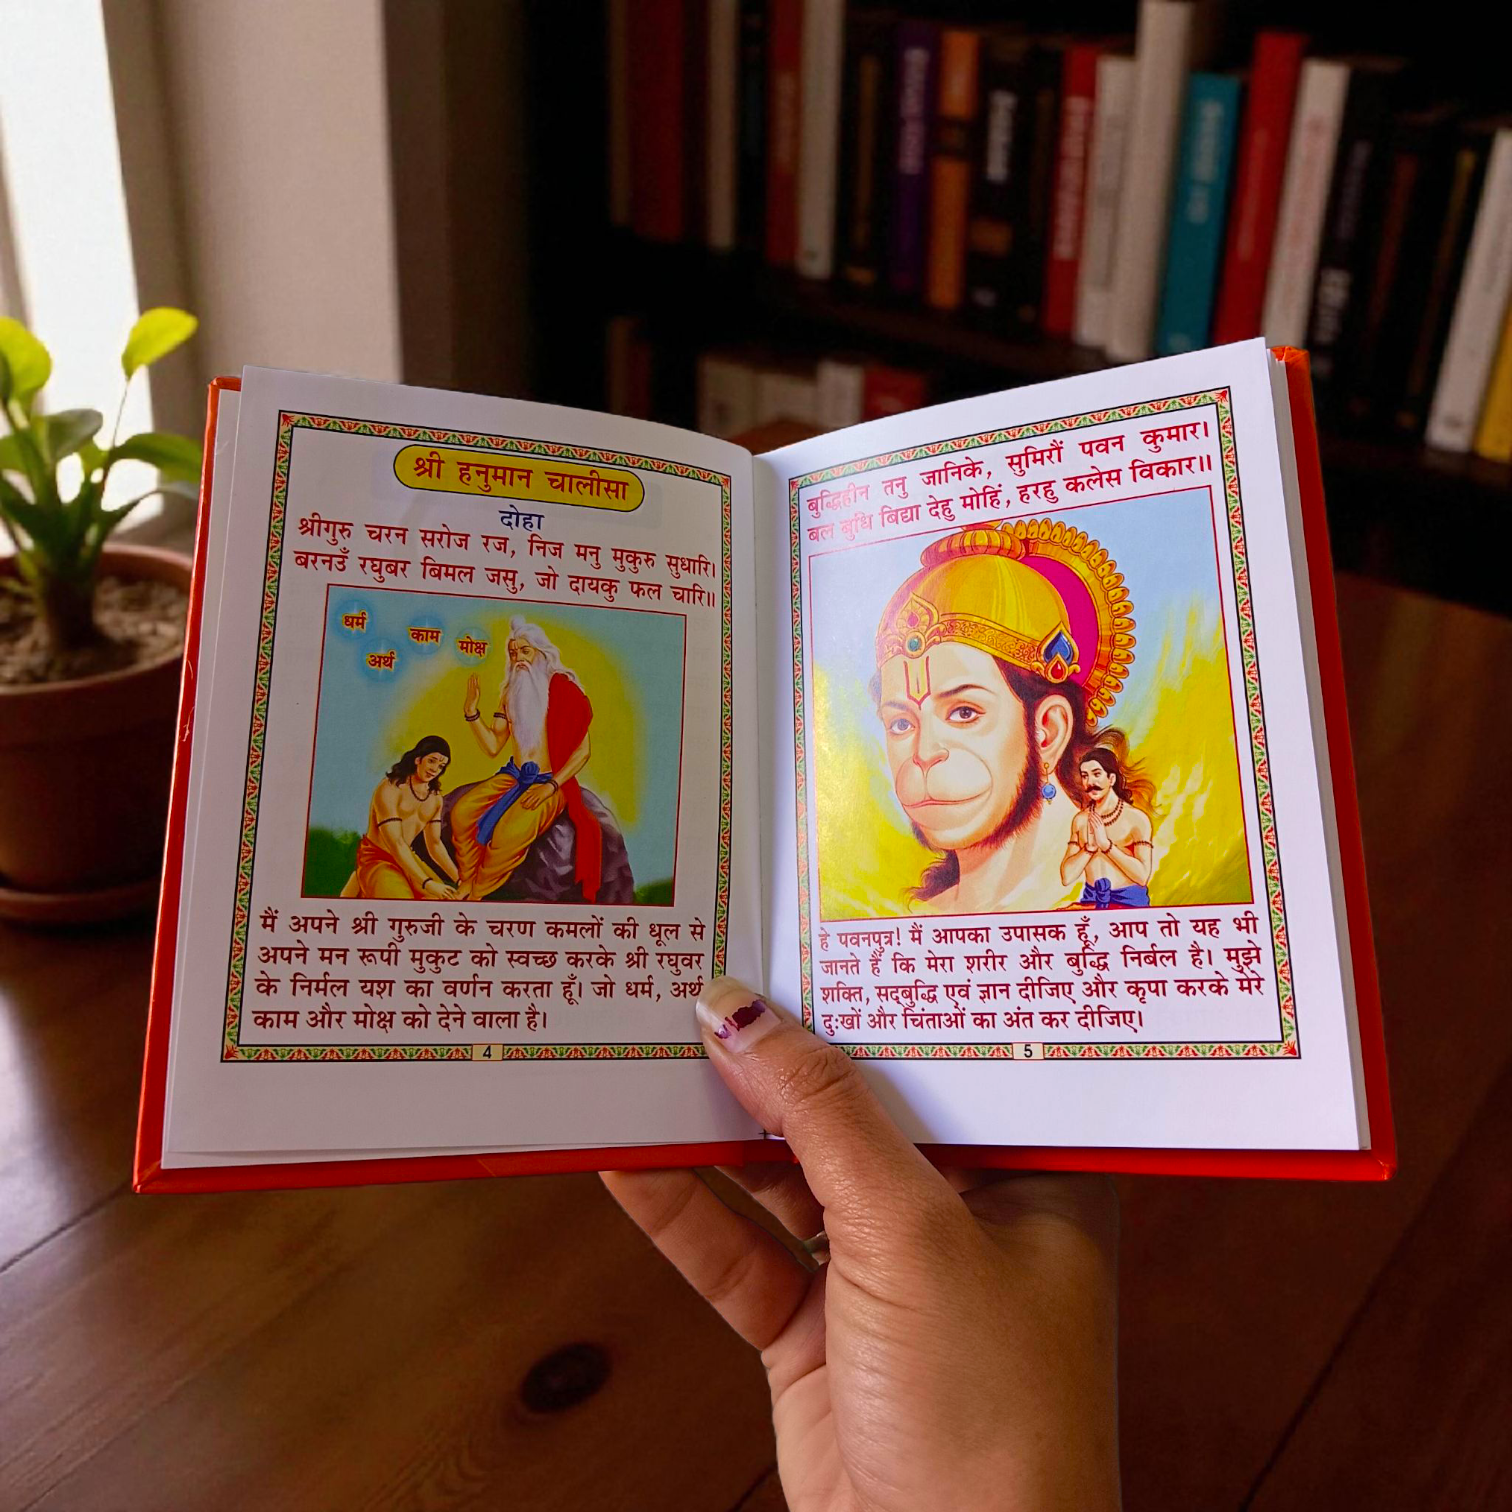 श्री हनुमान चालीसा
दोहा
श्रीगुरु चरन सरोज रज, निज मनु मुकुरु सुधारि।
बरनउँ रघुबर बिमल जसु, जो दायकु फल चारि॥
धर्म
अर्थ
काम
मोक्ष
मैं अपने श्री गुरुजी के चरण कमलों की धूल से
अपने मन रूपी मुकुट को स्वच्छ करके श्री रघुवर
के निर्मल यश का वर्णन करता हूँ। जो धर्म, अर्थ
काम और मोक्ष को देने वाला है।
4
बुद्धिहीन तनु जानिके, सुमिरौं पवन कुमार।
बल बुधि बिद्या देहु मोहिं, हरहु कलेस विकार॥
हे पवनपुत्र! मैं आपका उपासक हूँ, आप तो यह भी
जानते हैं कि मेरा शरीर और बुद्धि निर्बल है। मुझे
शक्ति, सद्‌बुद्धि एवं ज्ञान दीजिए और कृपा करके मेरे
दुःखों और चिंताओं का अंत कर दीजिए।
5